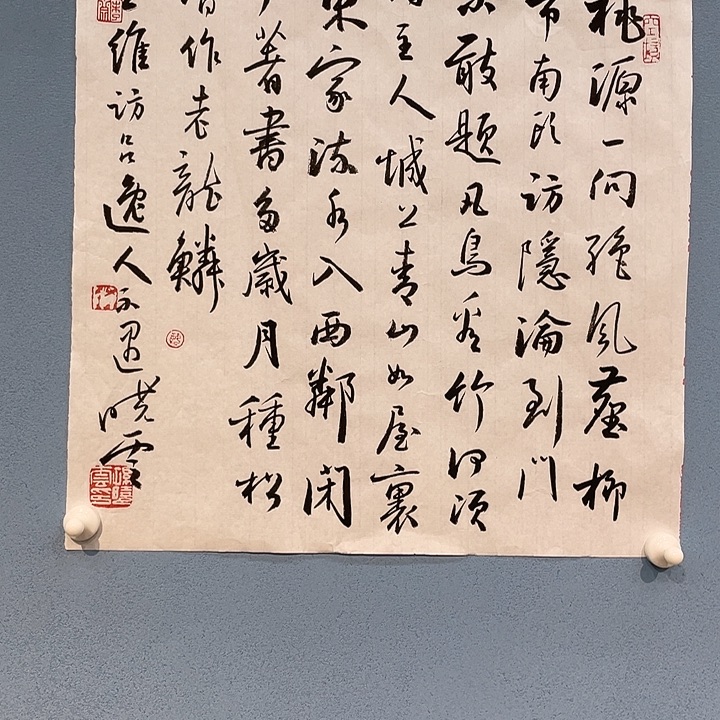 桃源一向絕風塵柳
市南頭訪隱淪到門
敢題凡鳥看竹何須
主人城上青山如屋裏
東家流水入西鄰閉
著書多歲月種松
皆作老龍鱗
維訪呂逸人不遇曉雲